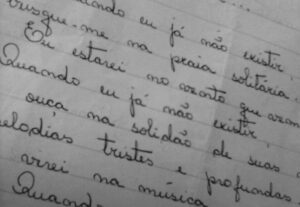 ando eu já não existir,
busque-me na praia solitária.
Eu estarei no vento que
Quando eu já não existir,
ouça na solidão de suas
melodias tristes e profundas.
virei na música
Quando